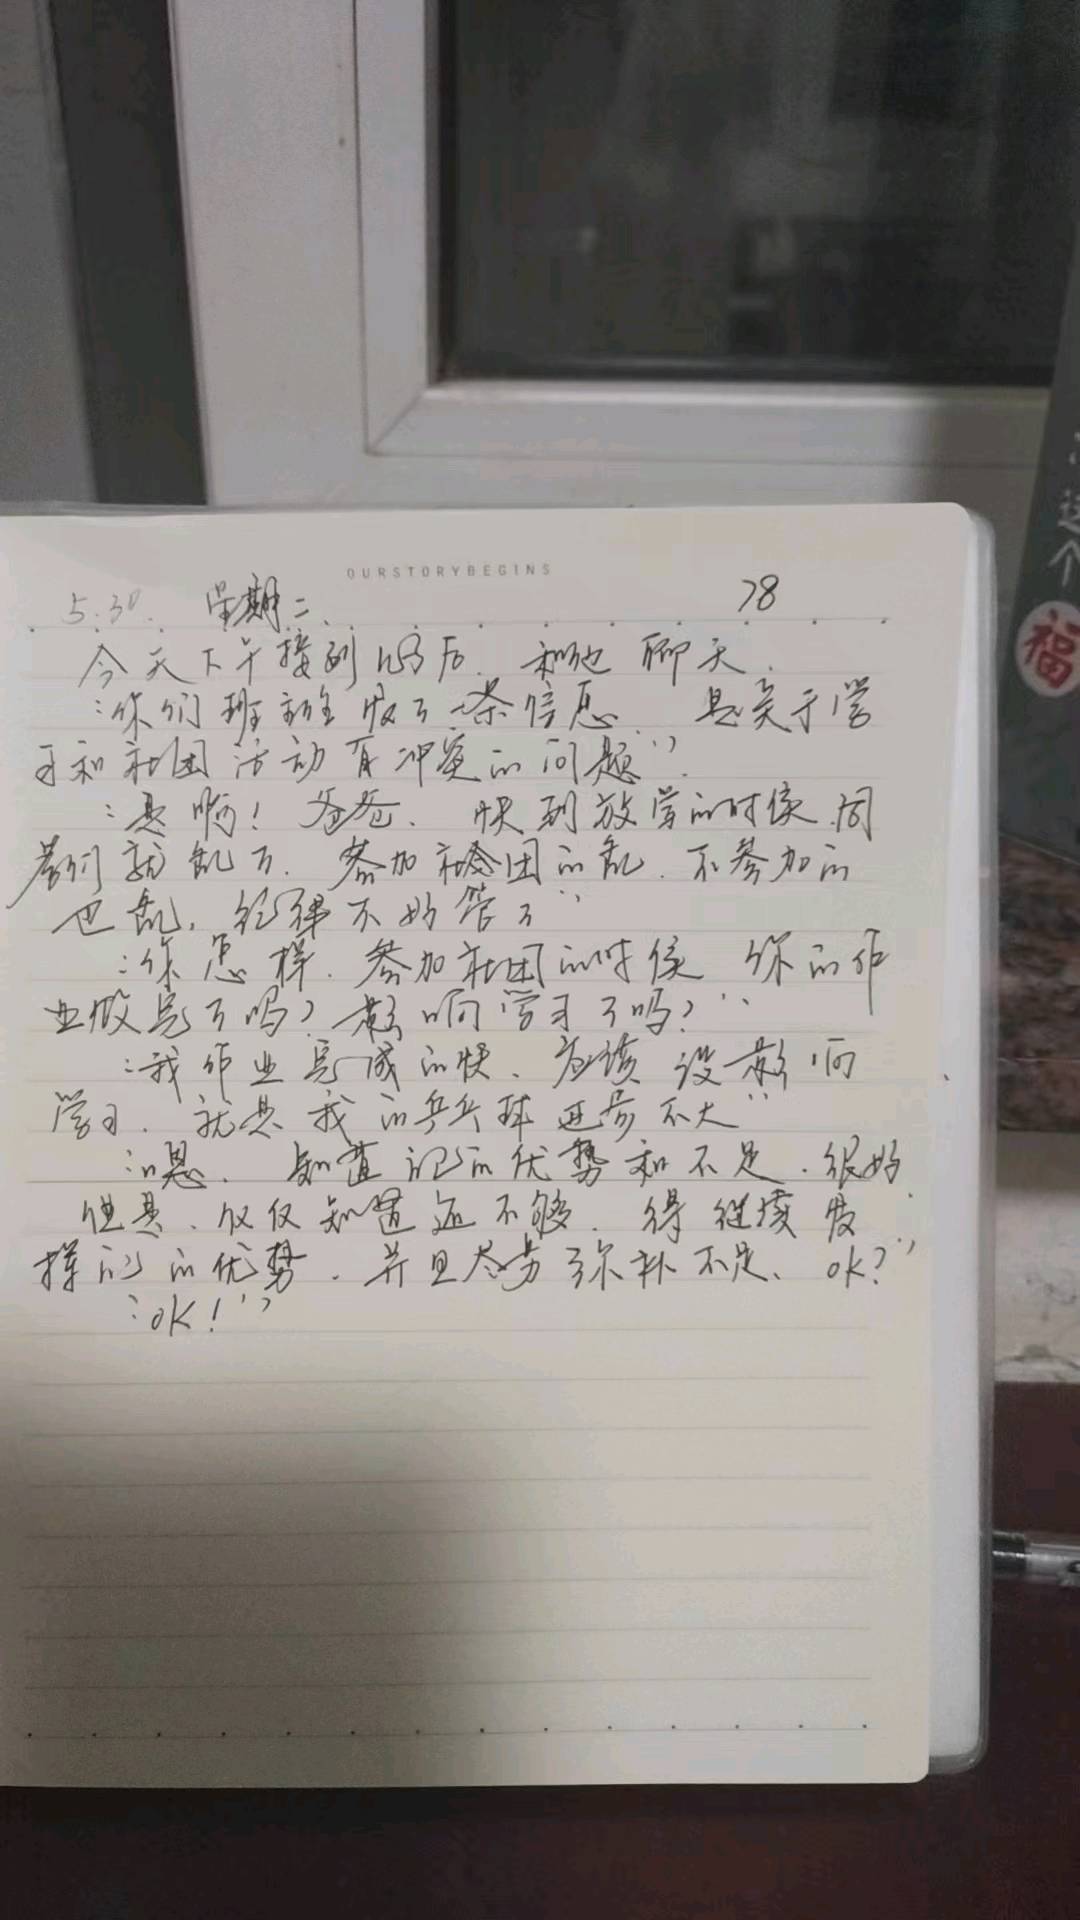 OURSTORYBEGINS
5.30. 星期二 78
今天下午接到后, 和他聊天.
“你们班主任发了一条信息 是关于学
习和社团活动有冲突的问题”.
“是啊! 爸爸, 快到放学的时候,同
学们就乱了, 参加社会团的乱, 不参加的
也乱, 纪律不好管了”
“你怎样, 参加社团的时候 你的作
业做完了吗? 影响学习了吗?”
“我作业完成的快, 应该没影响
学习, 就是我的乒乓球进步不大”
“嗯, 知道自己的优势和不足, 很好,
但是, 仅仅知道还不够, 得继续发
挥自己的优势, 并且尽力弥补不足, OK?”
“OK!”
这个
福